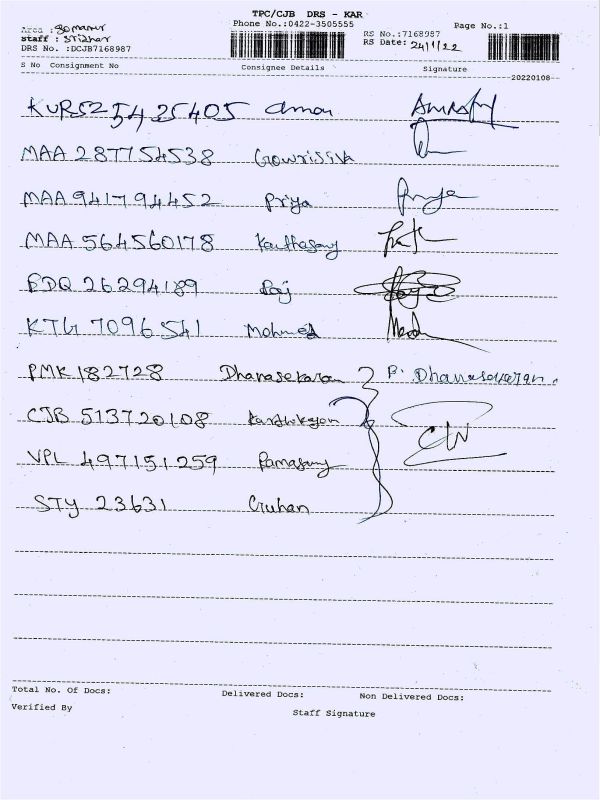 TPC/CJB DRS - KAR
Phone No.:0422-3505555
Page No.:1
Area : Somanur
Staff : Sridhar
DRS No. :DCJB7168987
RS No.:7168987
RS Date: 24/1/22
S No Consignment No Consignee Details Signature
20220108
KUR525425405 aman
MAA 287754538 Gowrisiva
MAA 941794452 Priya Priya
MAA 564560178 Karthasamy
BDQ 26294189 Raj
KTG 7096541 Mohmed
PMK 182728 Dhanasekaran P. Dhanasekaran.
CJB 513720108 Karthikeyan
VPL 497151259 Ramasamy
STY 23631 Guhan
Total No. Of Docs: Delivered Docs: Non Delivered Docs:
Verified By
Staff Signature